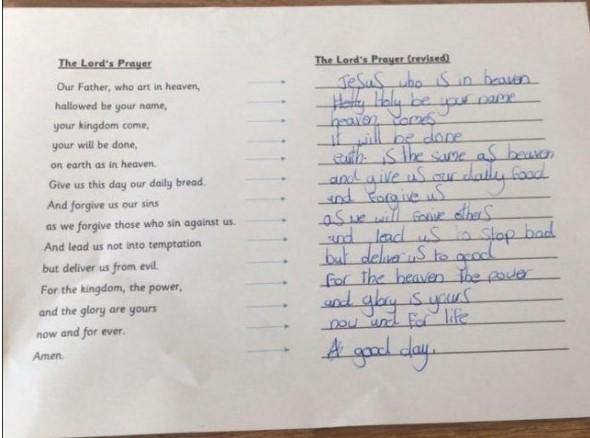 The Lord's Prayer
Our Father, who art in heaven,
hallowed be your name,
your kingdom come,
your will be done,
on earth as in heaven.
Give us this day our daily bread.
And forgive us our sins
as we forgive those who sin against us.
And lead us not into temptation
but deliver us from evil.
For the kingdom, the power,
and the glory are yours
now and for ever.
Amen.
The Lord's Prayer (revised)
Jesus who is in heaven
Holy be your name
heaven comes
it will be done
earth is the same as heaven
and give us our daily food
and forgive us
as we will others
and lead us to stop bad
but deliver us to good
for the heaven the power
and glory is yours
now and for life
A good day.